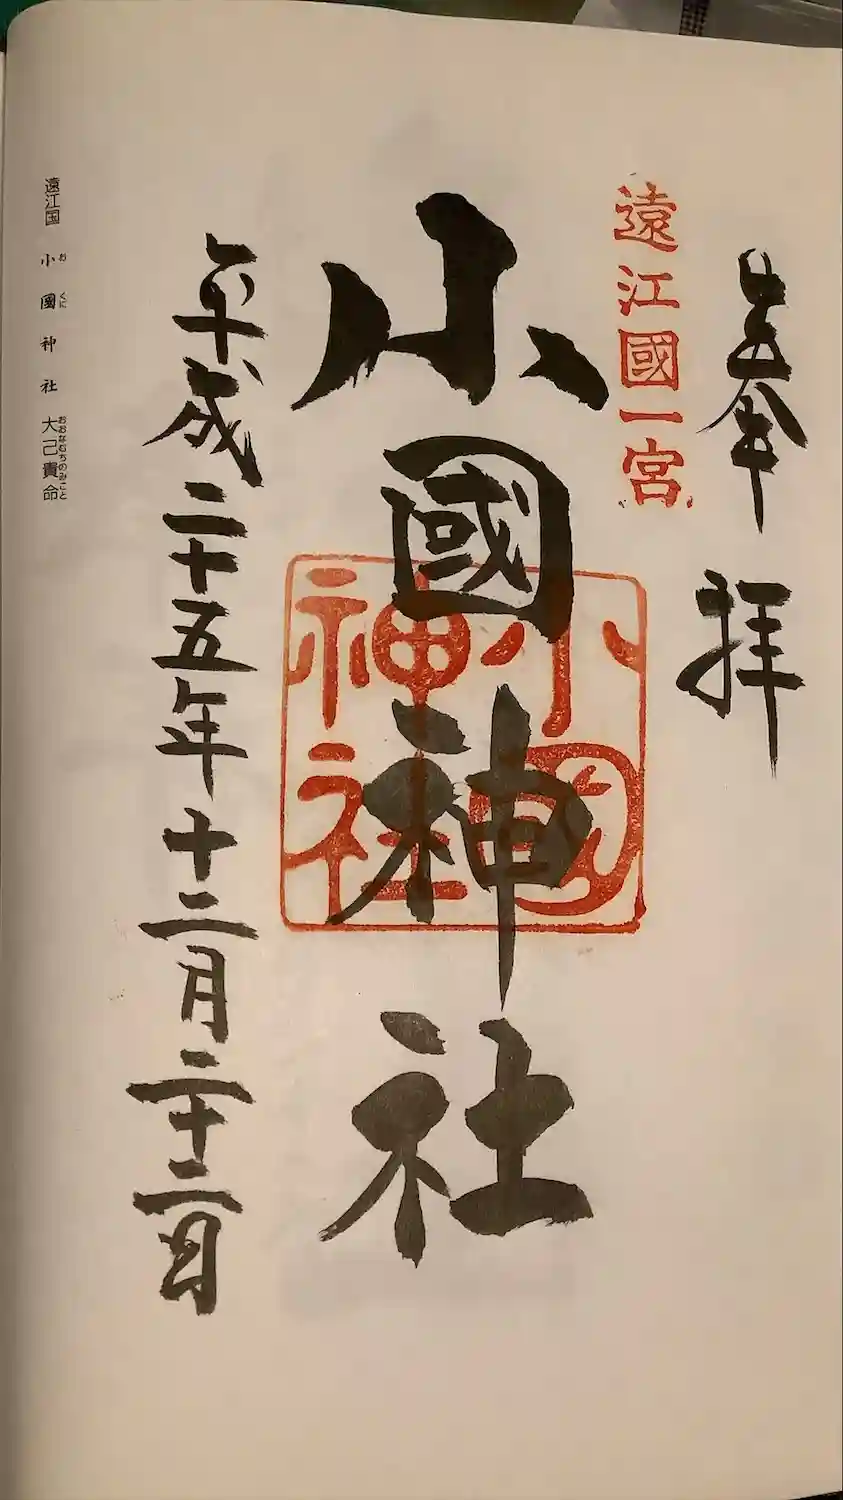 奉拝
遠江國一宮
小國神社
小國神社
平成二十五年十二月二十二日
遠江国 小國神社 大己貴命
おくに
おおなむちのみこと